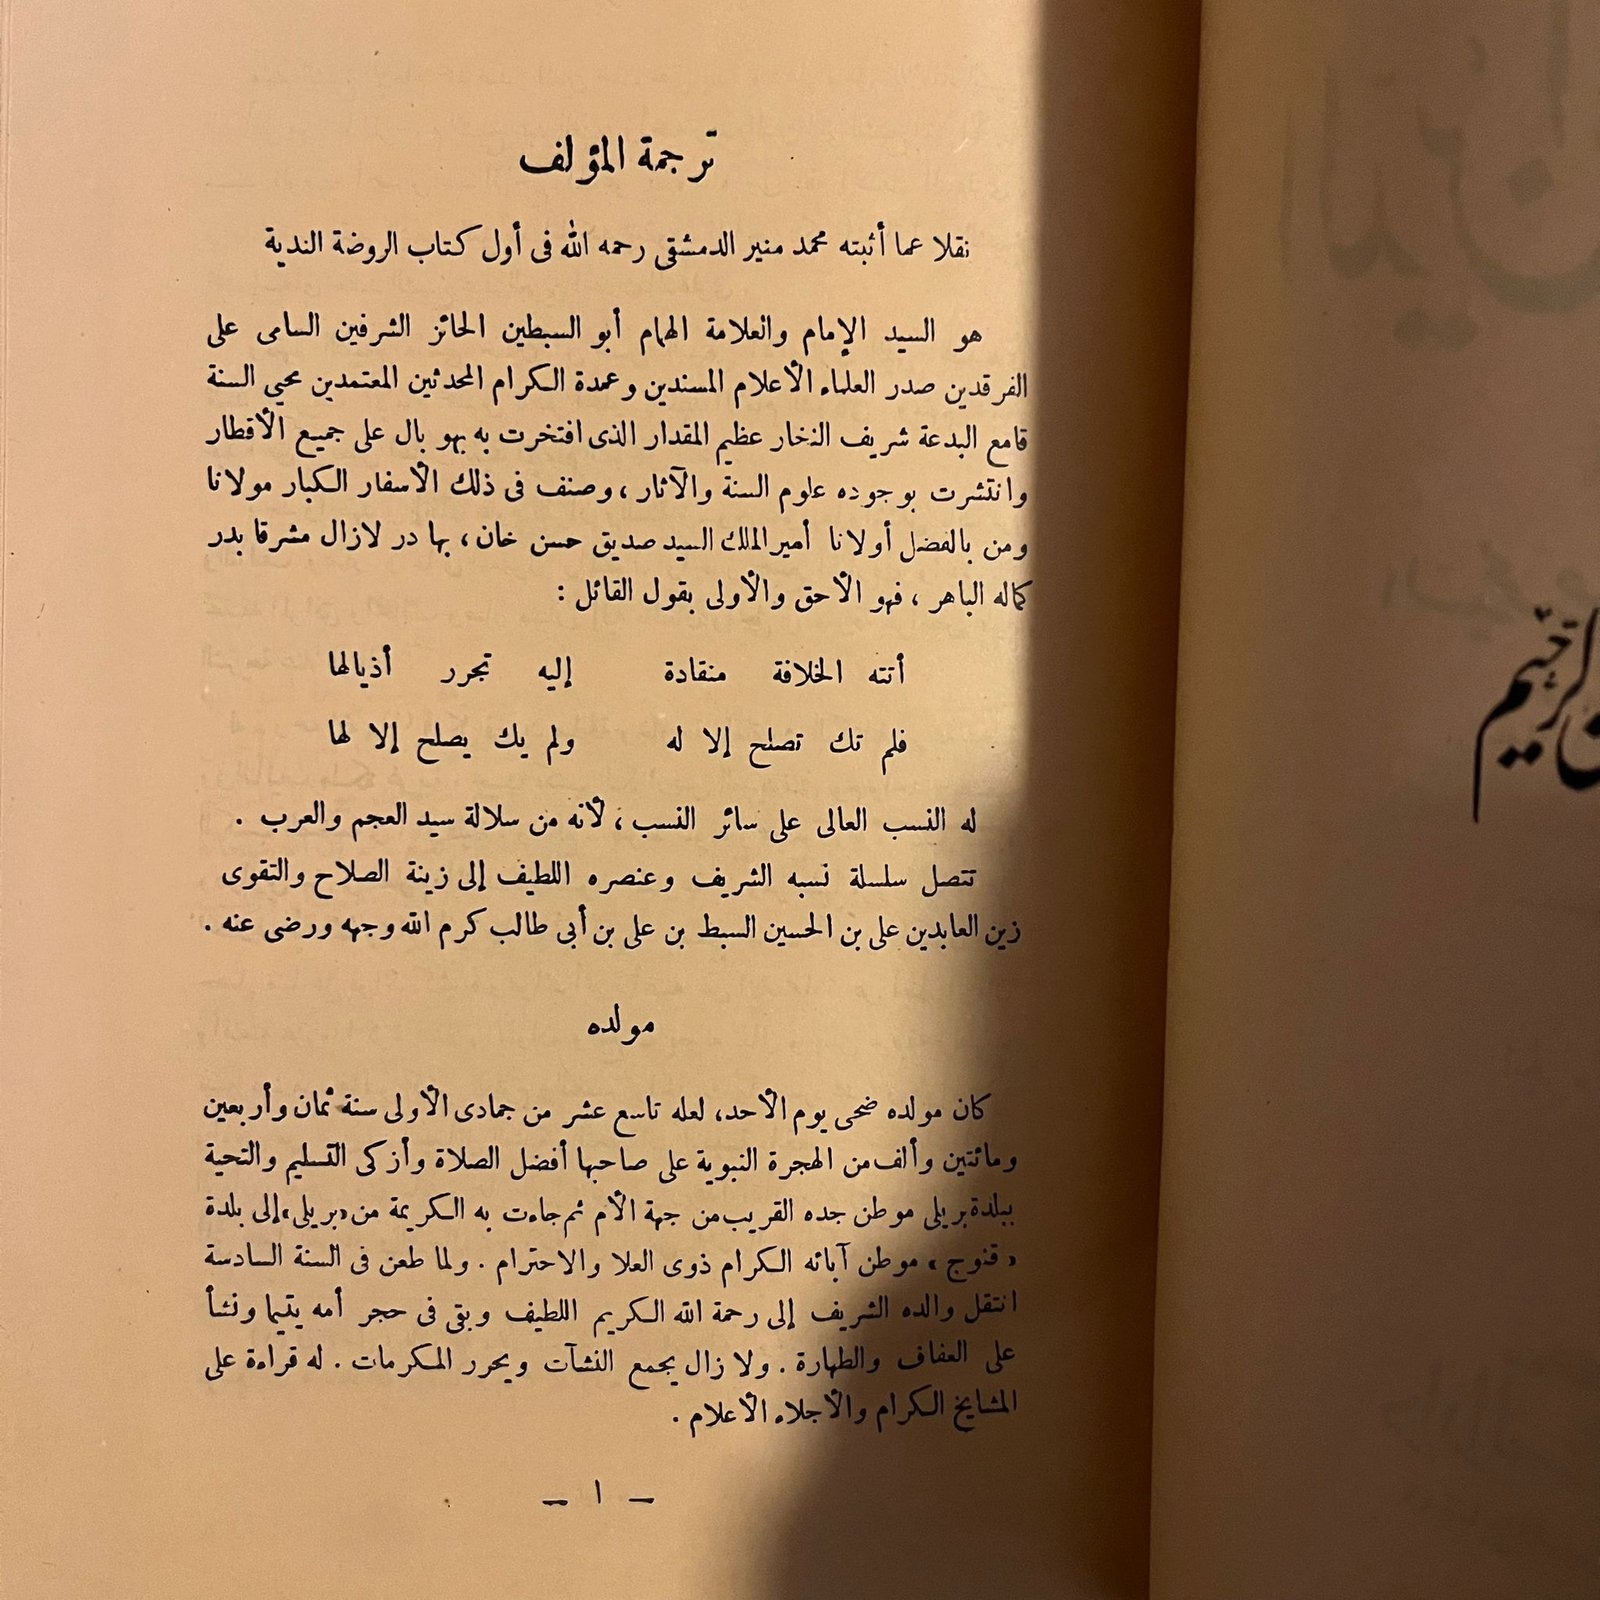 ترجمة المؤلف
نقلا عما أثبته محمد منير الدمشقى رحمه الله فى أول كتاب الروضة الندية
هو السيد الإمام والعلامة الهمام أبو السبطين الحائز الشرفين السامى على
الفرقدين صدر العلماء الأعلام المسندين وعمدة الكرام المحدثين المعتمدين محيي السنة
قامع البدعة شريف النخار عظيم المقدار الذى افتخرت به بهو بال على جميع الأقطار
وانتشرت بوجوده علوم السنة والآثار ، وصنف فى ذلك الأسفار الكبار مولانا
ومن بالفضل أولانا أمير الملك السيد صديق حسن خان ، بهادر لازال مشرقا بدر
كماله الباهر ، فهو الأحق والأولى بقول القائل :
أتته الخلافة منقادة إليه تجرر أذيالها
فلم تك تصلح إلا له ولم يك يصلح إلا لها
له النسب العالى على سائر النسب ، لأنه من سلالة سيد العجم والعرب .
تتصل سلسلة نسبه الشريف وعنصره اللطيف إلى زينة الصلاح والتقوى
زين العابدين على بن الحسين السبط بن على بن أبى طالب كرم الله وجهه ورضى عنه .
مولده
كان مولده ضحى يوم الأحد، لعله تاسع عشر من جمادى الأولى سنة ثمان وأربعين
ومائتين وألف من الهجرة النبوية على صاحبها أفضل الصلاة وأزكى التسليم والتحية
ببلدة بريلى موطن جده القريب من جهة الأم ثم جاءت به الكريمة من «بريلى» إلى بلدة
« قنوج » موطن آبائه الكرام ذوى العلا والاحترام . ولما طعن فى السنة السادسة
انتقل والده الشريف إلى رحمة الله الكريم اللطيف وبقى فى حجر أمه يتيما ونشأ
على العفاف والطهارة . ولا زال يجمع النشآت ويحرر المكرمات . له قراءة على
المشايخ الكرام والأجلاء الأعلام .
— ١ —